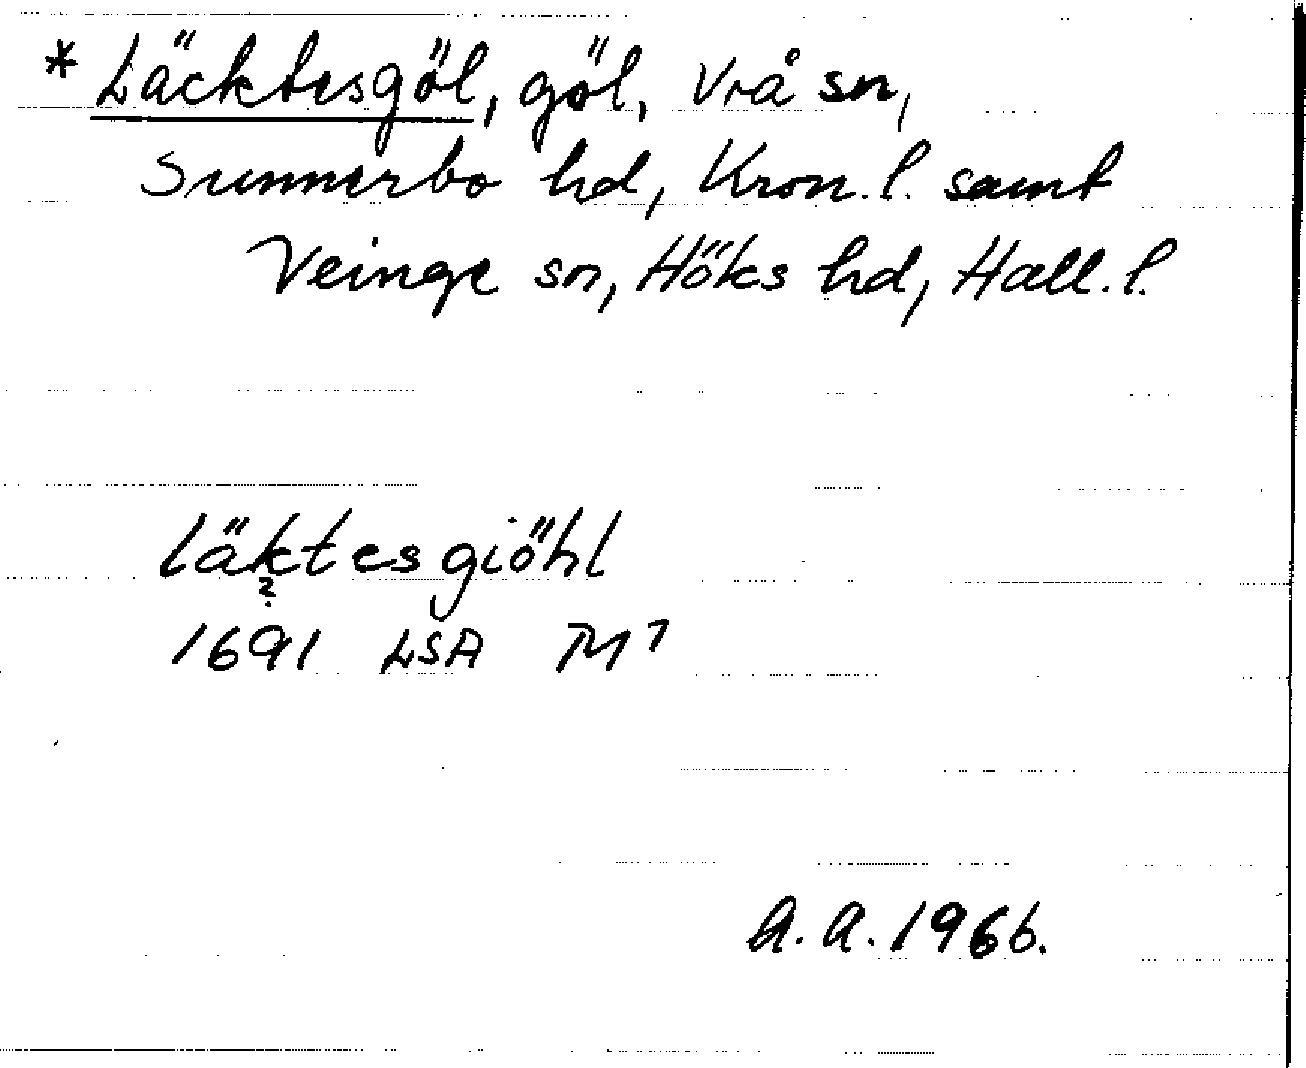 * Läcktesgöl, göl, Vrå sn,
Sunnerbo hd, Kron. l. samt
Veinge sn, Höks hd, Hall. l.
läktesgiöhl
?
1691 LSA M7
A. A. 1966.